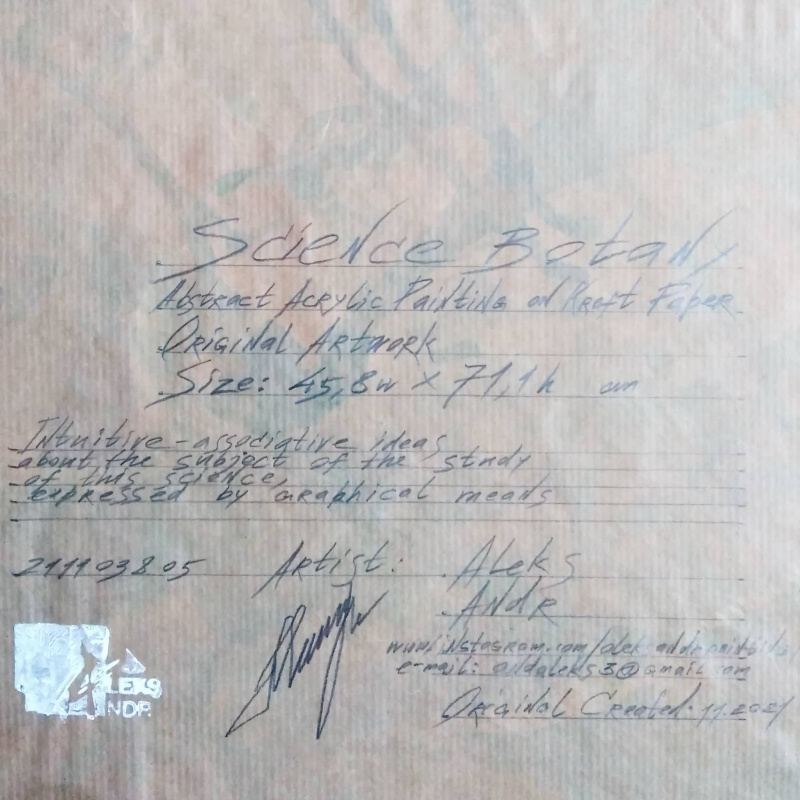 Science Botany
Abstract Acrylic Painting on Kraft Paper
Original Artwork
Size: 45,8w x 71,1h cm
Intuitive-associative ideas
about the subject of the study
of this science,
expressed by graphical means
211103805
Artist: Aleks
Andr
www.instagram.com/aleksandrpaintings
e-mail: andaleks3@gmail.com
Original Created: 11.2021
ALEKS
ANDR